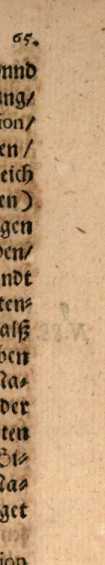 65.
nnd
ng/
ion/
en/
eich
en)
gen
en/
ndt
ten⸗
alß
ben
Na⸗
der
ten
Gi⸗
Na⸗
get
ion